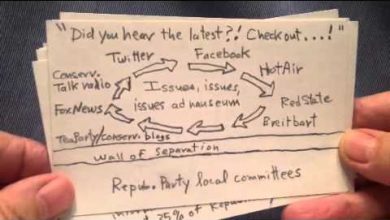 "Did you hear the latest?! Check out...!"
Twitter Facebook
Conserv. Talk radio
HotAir
Issues, issues,
issues ad nauseum
FoxNews
RedState
Breitbart
TeaParty/conserv. blogs
Wall of Separation
Repub. Party local committees
25% of